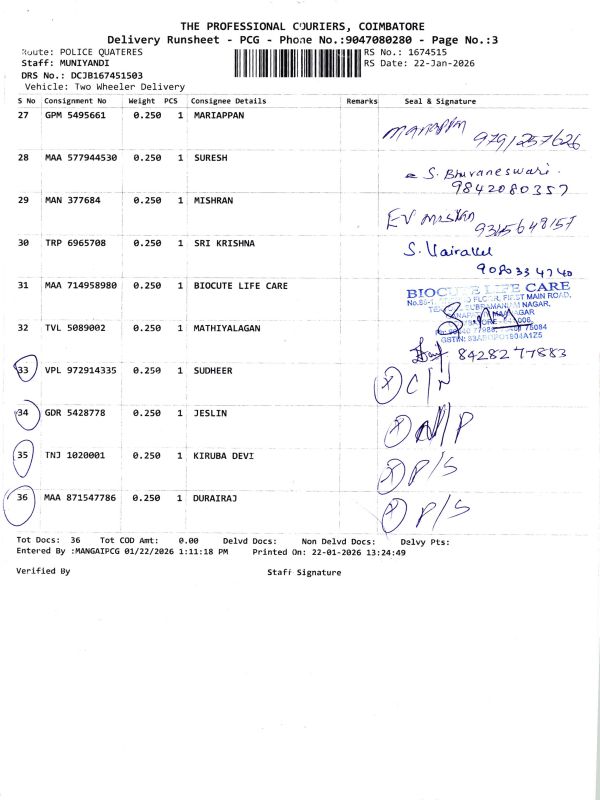 THE PROFESSIONAL COURIERS, COIMBATORE
Delivery Runsheet - PCG - Phone No.:9047080280 - Page No.:3
Route: POLICE QUATERES
RS No.: 1674515
Staff: MUNIYANDI
RS Date: 22-Jan-2026
DRS No.: DCJB167451503
Vehicle: Two Wheeler Delivery
S No Consignment No Weight PCS Consignee Details Remarks Seal & Signature
27 GPM 5495661 0.250 1 MARIAPPAN
Mariappan 9791257626
28 MAA 577944530 0.250 1 SURESH
S. Bhuvaneswari.
9842080357
29 MAN 377684 0.250 1 MISHRAN
30 TRP 6965708 0.250 1 SRI KRISHNA
S. Vairavel
9080334740
31 MAA 714958980 0.250 1 BIOCUTE LIFE CARE
BIOCUTE LIFE CARE
FLOOR, FIRST MAIN ROAD,
SUBRAMANIAM NAGAR,
32 TVL 5089002 0.250 1 MATHIYALAGAN
8428277883
33 VPL 972914335 0.250 1 SUDHEER
X C/N
34 GDR 5428778 0.250 1 JESLIN
X N/P
35 TNJ 1020001 0.250 1 KIRUBA DEVI
X P/S
36 MAA 871547786 0.250 1 DURAIRAJ
X P/S
Tot Docs: 36 Tot COD Amt: 0.00 Delvd Docs: Non Delvd Docs: Delvy Pts:
Entered By :MANGAIPCG 01/22/2026 1:11:18 PM Printed On: 22-01-2026 13:24:49
Verified By Staff Signature